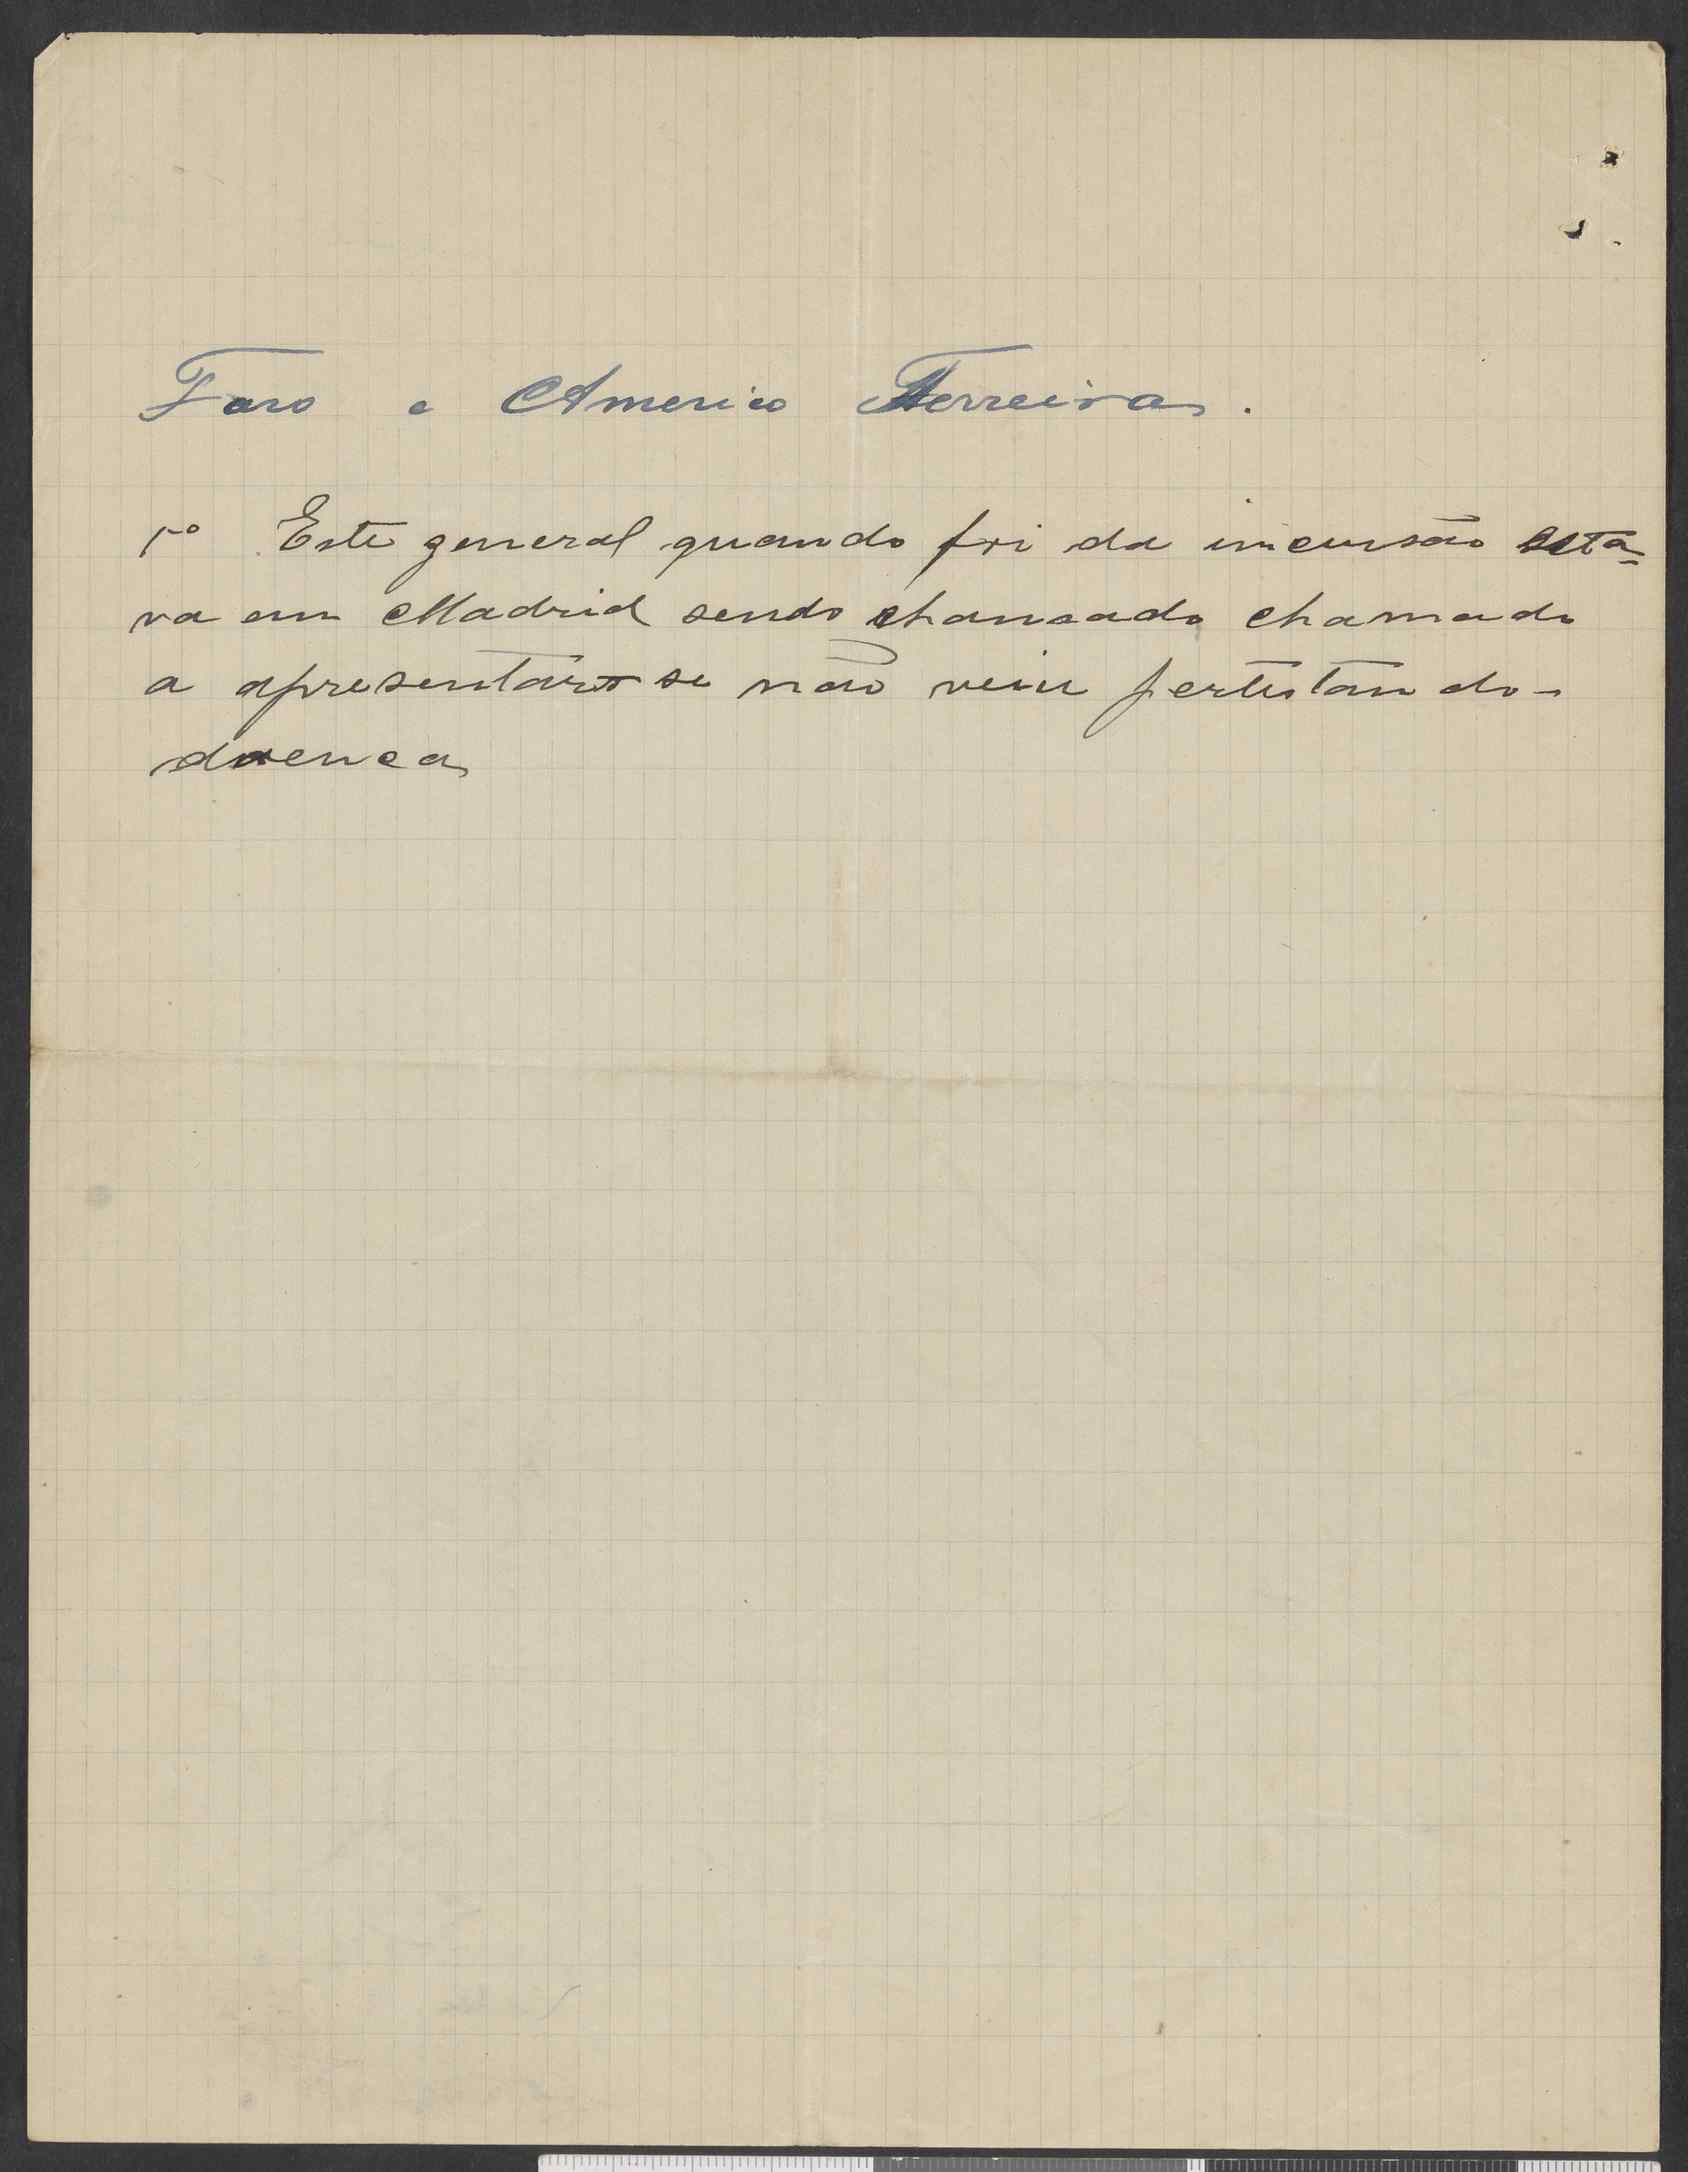 Faro e Americo Ferreira.
1º Este general quando foi da incursão esta-
va em Madrid sendo chamado chamado
a apresentar se não veiu pertestando-
doenca